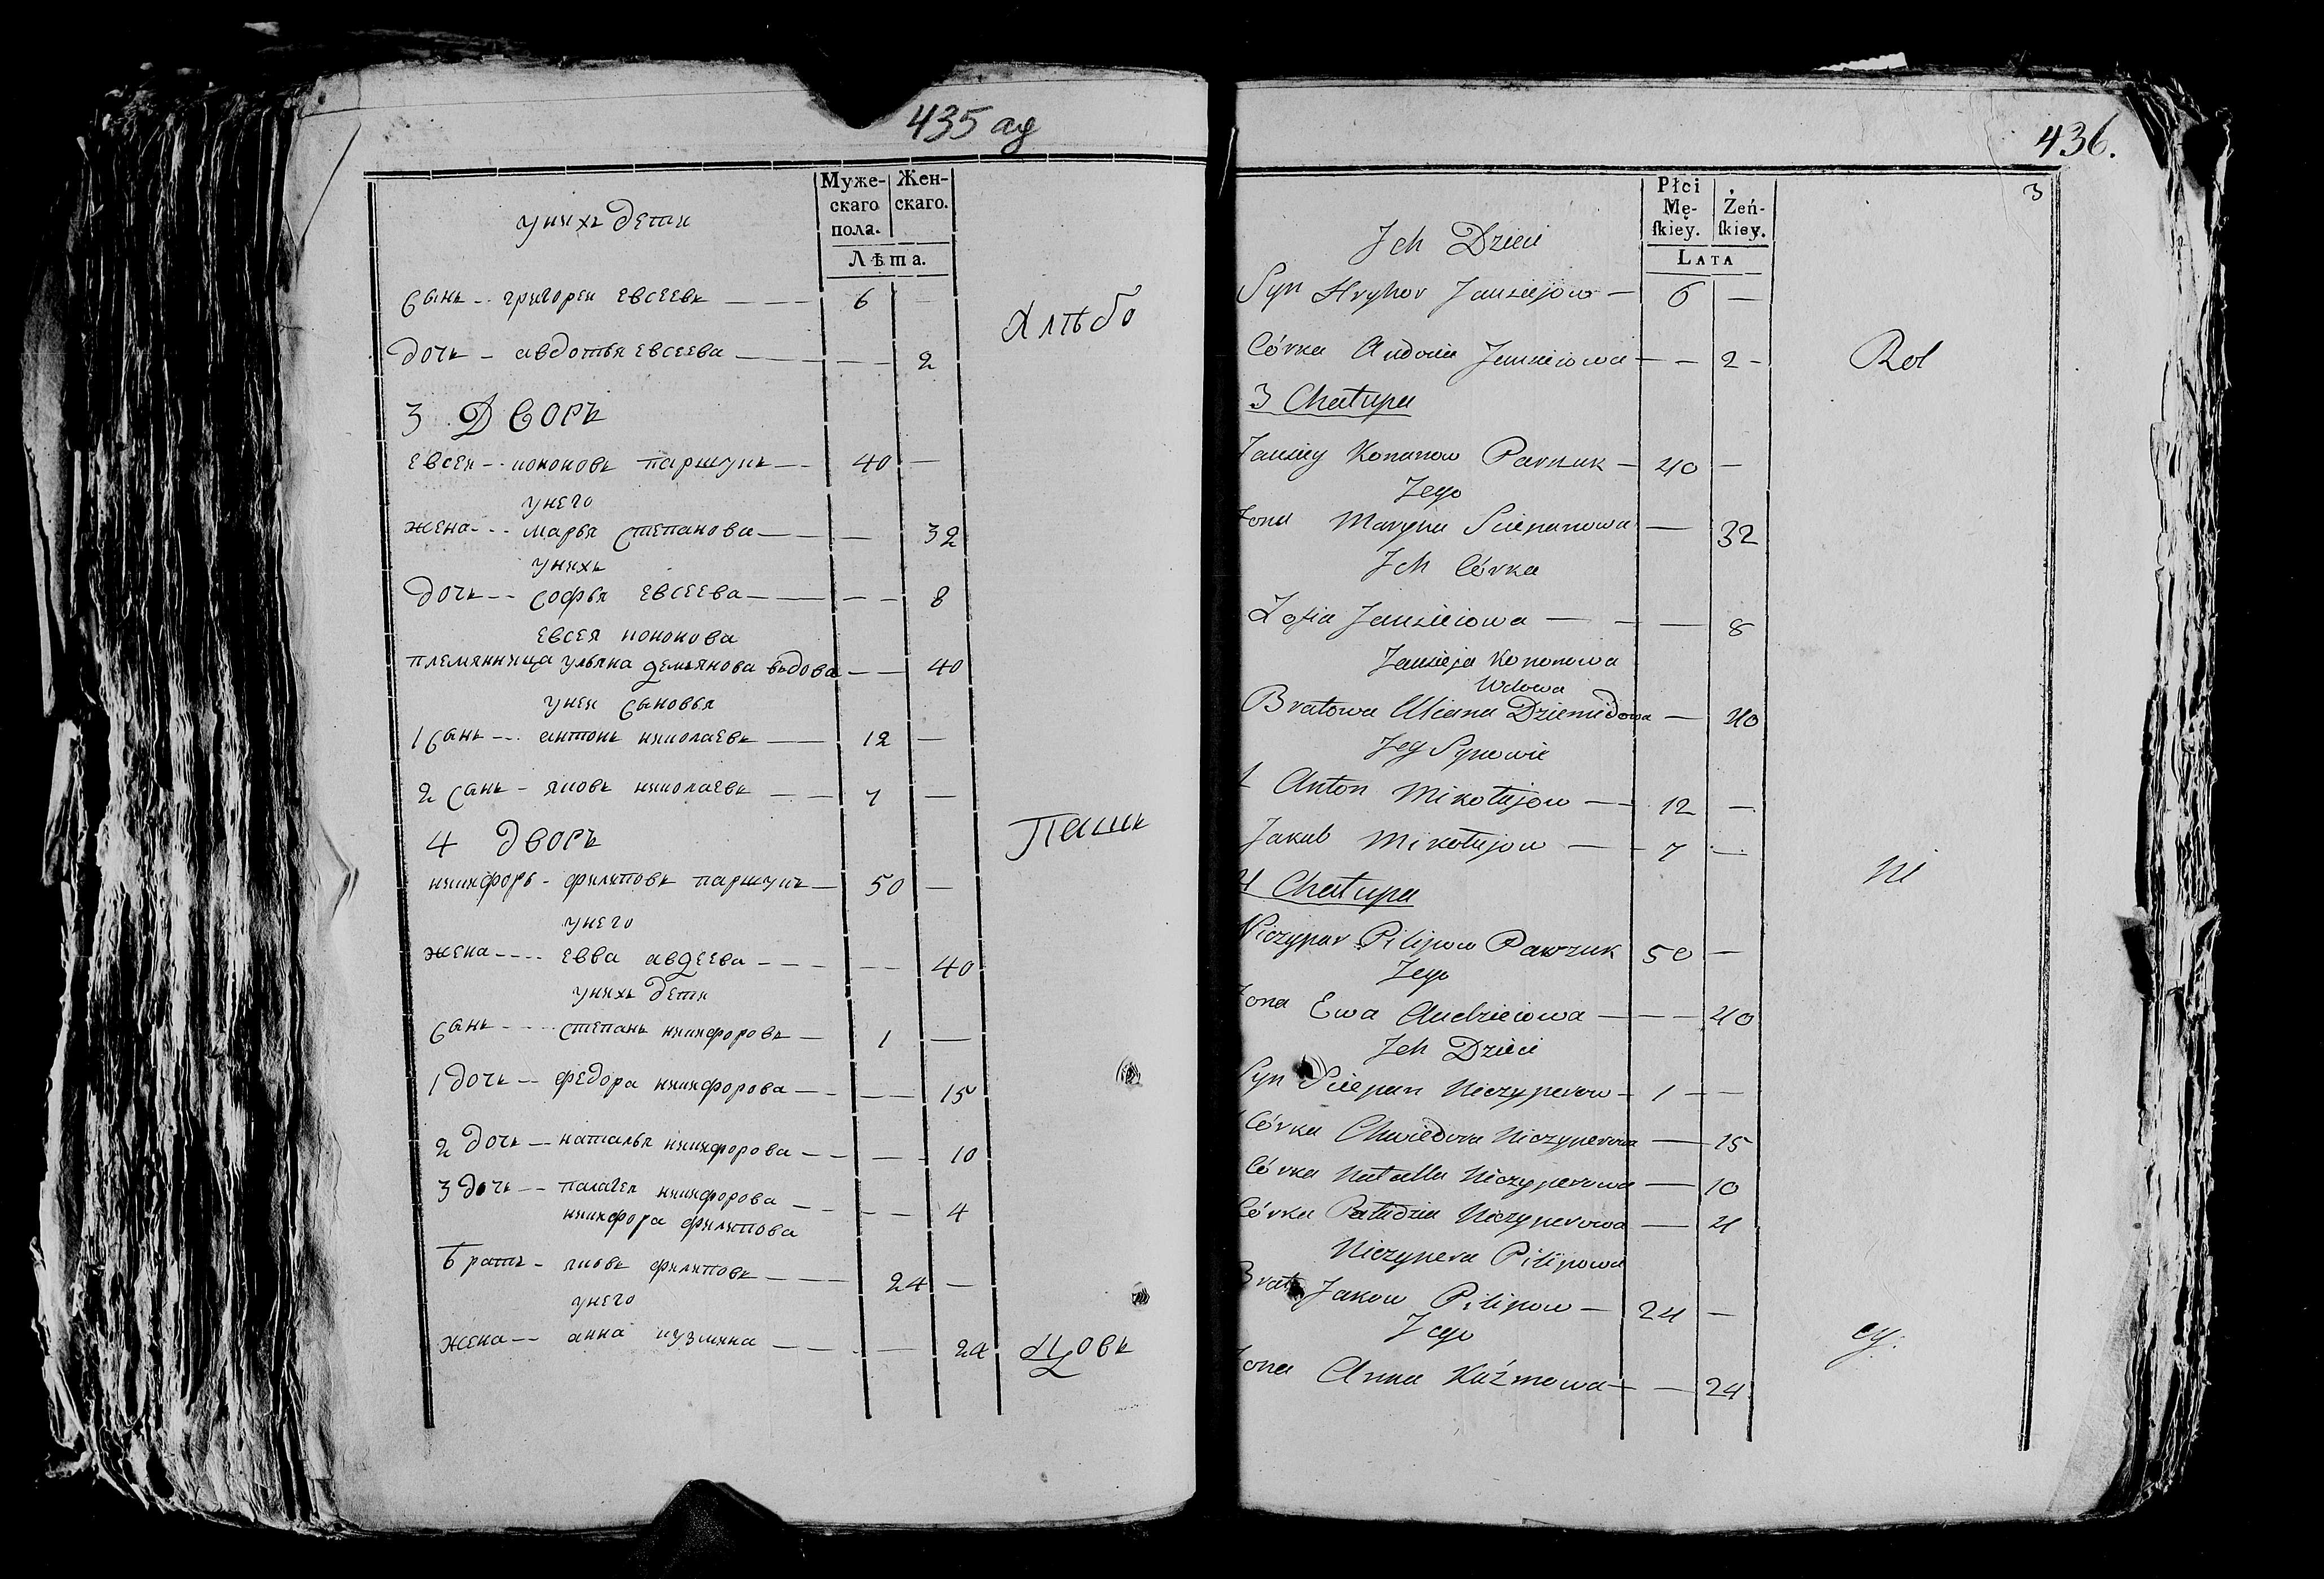 435 ад
Муже-
скаго
пола.
Жен-
скаго.
Лѣта.
унихъ дети
сынъ - григореи евсеевъ - 6 -
Хлѣбо
дочь - авдотья евсеева - 2
3 Дворъ
евсеи - кононовъ паршукъ - 40 -
унего
жена - марья степанова - 32
унихъ
дочь - софья евсеева - 8
евсея кононова
племянница ульяна демьянова вьдова - 40
унеи сыновья
1 сынъ - антонъ николаевъ - 12 -
2 сынъ - яковъ николаевъ - 7 -
Пашъ
4 дворъ
никифоръ - филиповъ паршукъ - 50 -
унего
жена - евва авдеева - 40
унихъ дети
сынъ - степанъ никифоровъ - 1 -
1 дочь - федора никифорова - 15
2 дочь - наталья никифорова - 10
3 дочь - палагея никифорова - 4
никифора филипова
братъ - яковъ филиповъ - 24 -
унего
жена - анна кузмина - 24
цовъ
436.
3
Płci
Mę-
ſkiey.
Żeń-
ſkiey.
LATA
Ich Dzieci
Syn Hryhor Jausiejow - 6 -
Córka Audocia Jausieiowa - - 2 -
Rol
3 Chałupa
Jausiey Kononow Parszuk - 40 -
Jego
Żona Maryna Sciepanowa - 32
Ich Córka
Zofia Jausieiowa - - 8
Jausieja Kononowa
Wdowa
Bratowa Uliana Dziemidowa - 40
Jey Synowie
1 Anton Mikołajow - 12 -
Jakub Mikołajow - 7 -
ni
4 Chałupa
Niczypar Pilipow Parszuk 50 -
Jego
Żona Ewa Audzieiowa - - 40
Ich Dzieci
Syn Sciepan Niczyperow - 1 -
Córka Chwiedora Niczyperowa - 15
Córka Natalla Niczyperowa - 10
Córka Pałudzia Niczyperowa - 4
Niczypera Pilipowa
Brat Jakow Pilipow - 24 -
Jego
cy.
Żona Anna Kuźmowa - - 24